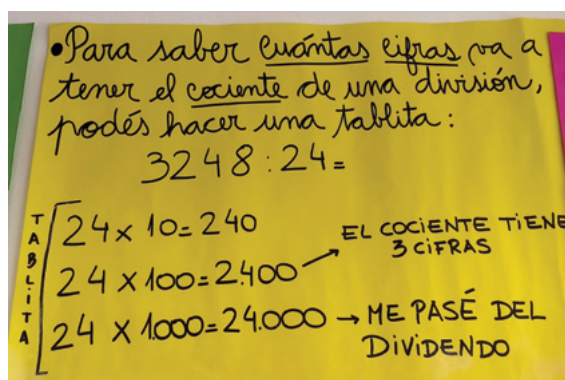 •Para saber cuántas cifras va a
tener el cociente de una división,
podés hacer una tablita:
3248:24=
TABLITA
24x10=240
24x100=2.400 → EL COCIENTE TIENE
3 CIFRAS
24x1.000=24.000 → ME PASÉ DEL
DIVIDENDO